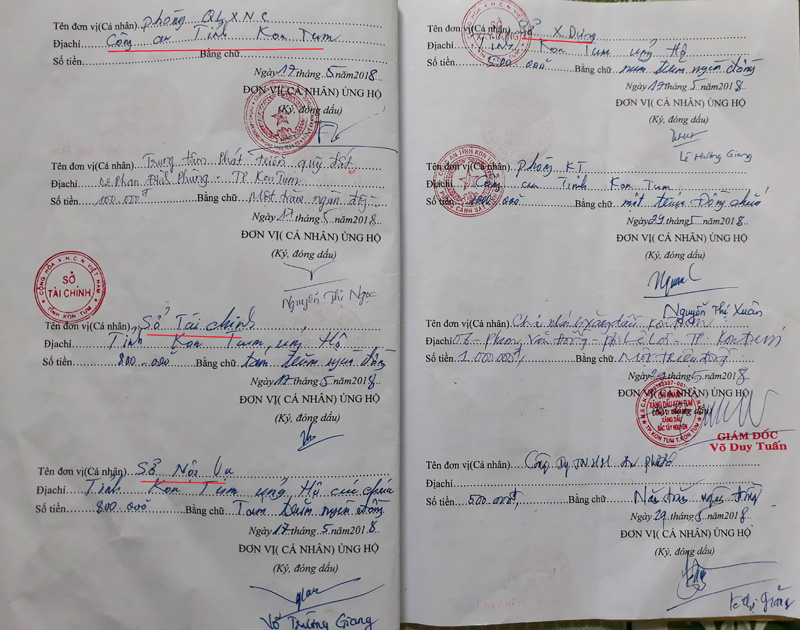 Tên đơn vị(Cá nhân) phòng QLXNC
Địachỉ Công an Tỉnh Kon Tum
Số tiền Bằng chữ
Ngày 17 tháng 5 năm 2018
ĐƠN VỊ( CÁ NHÂN) ỦNG HỘ
(Ký, đóng dấu)
Tên đơn vị(Cá nhân) Trung tâm Phát triển quỹ đất
Địachỉ Phan Đình Phùng - TP KonTum
Số tiền 100.000đ Bằng chữ Một trăm ngàn đồng
Ngày 17 tháng 5 năm 2018
ĐƠN VỊ( CÁ NHÂN) ỦNG HỘ
(Ký, đóng dấu)
Nguyễn Thị Ngọc
CỘNG HÒA X.H.C.N VIỆT NAM
SỞ
TÀI CHÍNH
TỈNH KON TUM
Tên đơn vị(Cá nhân) Sở Tài chính
Địachỉ Tỉnh Kon Tum ủng Hộ
Số tiền 800.000 Bằng chữ tám trăm ngàn đồng
Ngày 17 tháng 5 năm 2018
ĐƠN VỊ( CÁ NHÂN) ỦNG HỘ
(Ký, đóng dấu)
Tên đơn vị(Cá nhân) Sở Nội Vụ
Địachỉ Tỉnh Kon Tum ủng Hộ
Số tiền 800.000 Bằng chữ Tam trăm ngìn đồng
Ngày 17 tháng 5 năm 2018
ĐƠN VỊ( CÁ NHÂN) ỦNG HỘ
(Ký, đóng dấu)
Võ Trường Giang
Tên đơn vị(Cá nhân) Sở X.Dựng
Địachỉ Tỉnh Kon Tum ủng Hộ
Số tiền 500.000 Bằng chữ năm trăm ngìn đồng
Ngày 17 tháng 5 năm 2018
ĐƠN VỊ( CÁ NHÂN) ỦNG HỘ
(Ký, đóng dấu)
Lê Hương Giang
Tên đơn vị(Cá nhân) phòng KT
Địachỉ Công an Tỉnh Kon Tum
Số tiền Bằng chữ một trăm Đồng
Ngày 29 tháng 5 năm 2018
ĐƠN VỊ( CÁ NHÂN) ỦNG HỘ
(Ký, đóng dấu)
Nguyễn Thị Xuân
Tên đơn vị(Cá nhân) Chi nhánh xăng dầu Kon Tum
Địachỉ Phạm Văn Đồng - TP - Kon Tum
Số tiền 1.000.000đ Bằng chữ Một triệu đồng
Ngày 29 tháng 5 năm 2018
ĐƠN VỊ( CÁ NHÂN) ỦNG HỘ
CHI NHÁNH
XĂNG DẦU KON TUM
XĂNG DẦU
BẮC TÂY NGUYÊN
TP.KON TUM T.KON TUM
GIÁM ĐỐC
Võ Duy Tuấn
Tên đơn vị(Cá nhân) Công Ty TNHH
Địachỉ
Số tiền 500.000đ Bằng chữ Năm trăm ngàn đồng
Ngày 29 tháng 5 năm 2018
ĐƠN VỊ( CÁ NHÂN) ỦNG HỘ
(Ký, đóng dấu)